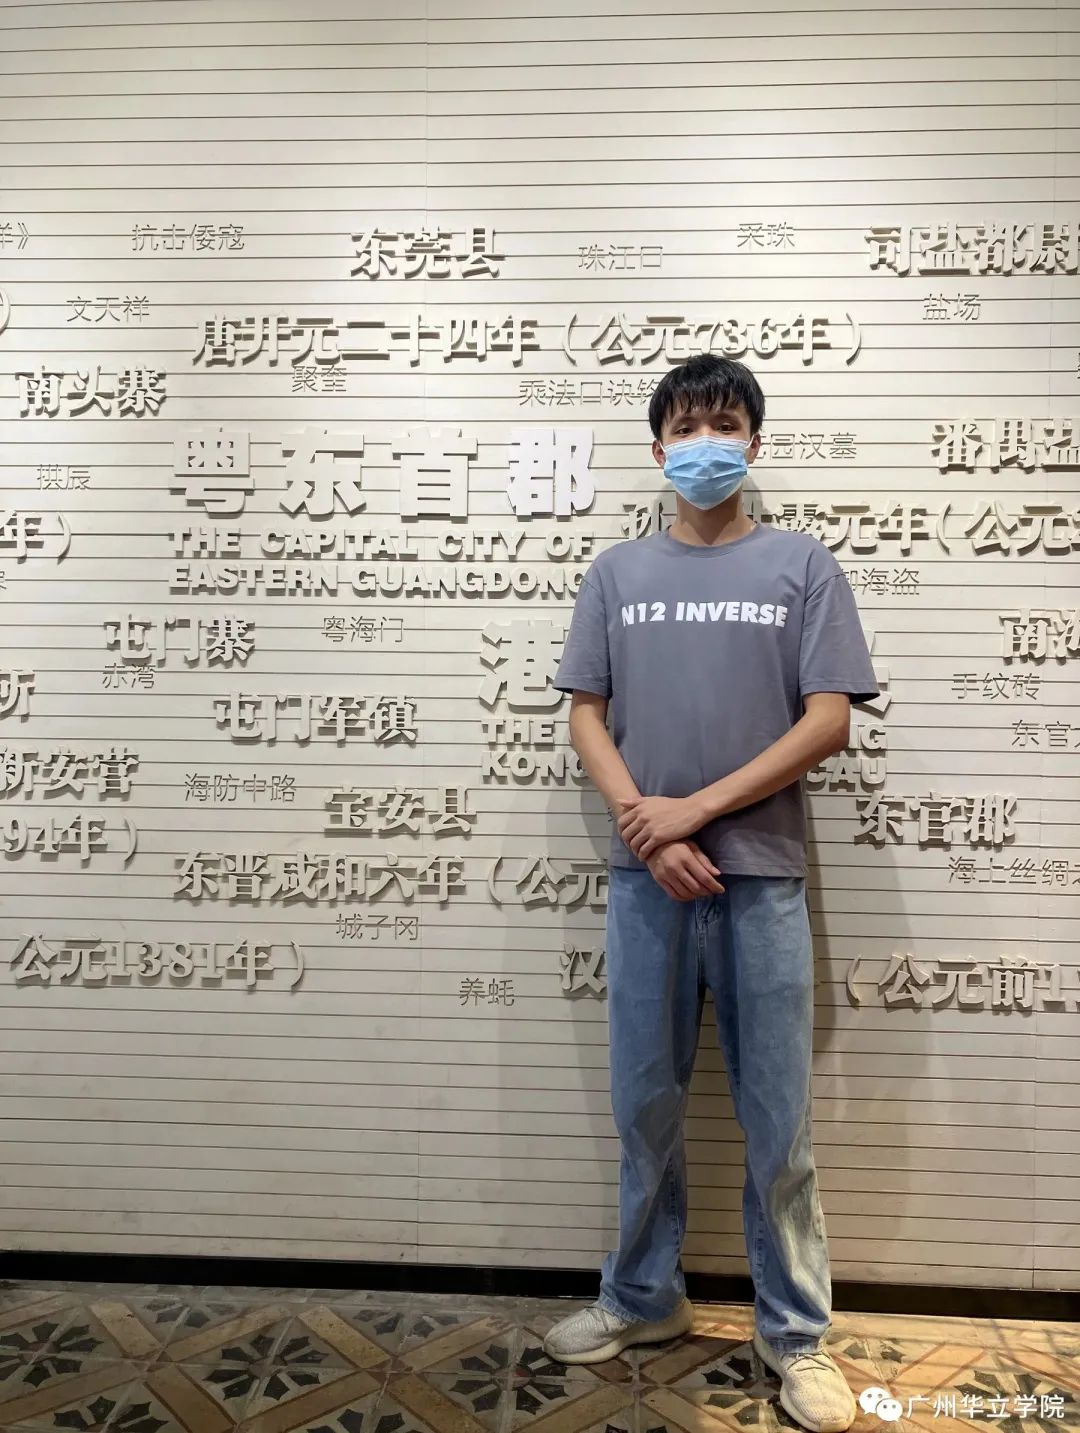 抗击倭寇
东莞县
珠江口
采珠
司盐都尉
文天祥
盐场
唐开元二十四年（公元736年）
南头寨
聚奎
乘法口诀
园汉墓
番禺盐
粤东首郡
拱辰
年）
元年（公元
THE CAPITAL CITY OF
EASTERN GUANGDONG
海盗
N12 INVERSE
屯门寨
粤海门
港
南海
赤湾
所
手纹砖
屯门军镇
THE
东官
新安营
KONG
CAU
海防中路
宝安县
东官郡
94年）
东晋咸和六年（公元
海上丝绸之
城子冈
公元1381年）
养蚝
汉
（公元前1
广州华立学院